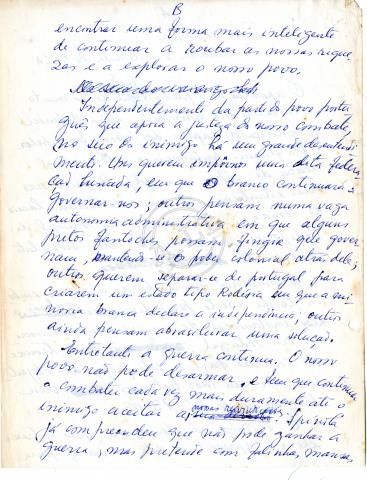 B
encontrar uma forma mais inteligente
de continuar a roubar as nossas rique
zas e a explorar o nosso povo.
Independentemente da parte do povo portu
guês que apoia a justeza do nosso combate,
no seio do inimigo há um grande desentendi
mento. Uns querem impôr-nos uma dita federa
ção lusíada, em que o branco continuaria a
governar-nos; outros pensam numa vaga
autonomia administrativa em que alguns
pretos fantoches possam fingir que gover
nam, mantendo-se o poder colonial atrás deles;
outros querem separar-se de Portugal para
criarem um estado tipo Rodésia em que a mi
noria branca declare a independência; outros
ainda pensam abrasileirar uma solução.
Entretanto a guerra continua. O nosso
povo não pode desarmar, e tem que continuar
o combater cada vez mais duramente até o
inimigo aceitar as nossas
Spínola
já compreendeu que não pode ganhar a
guerra, mas pretende com falinhas mansas